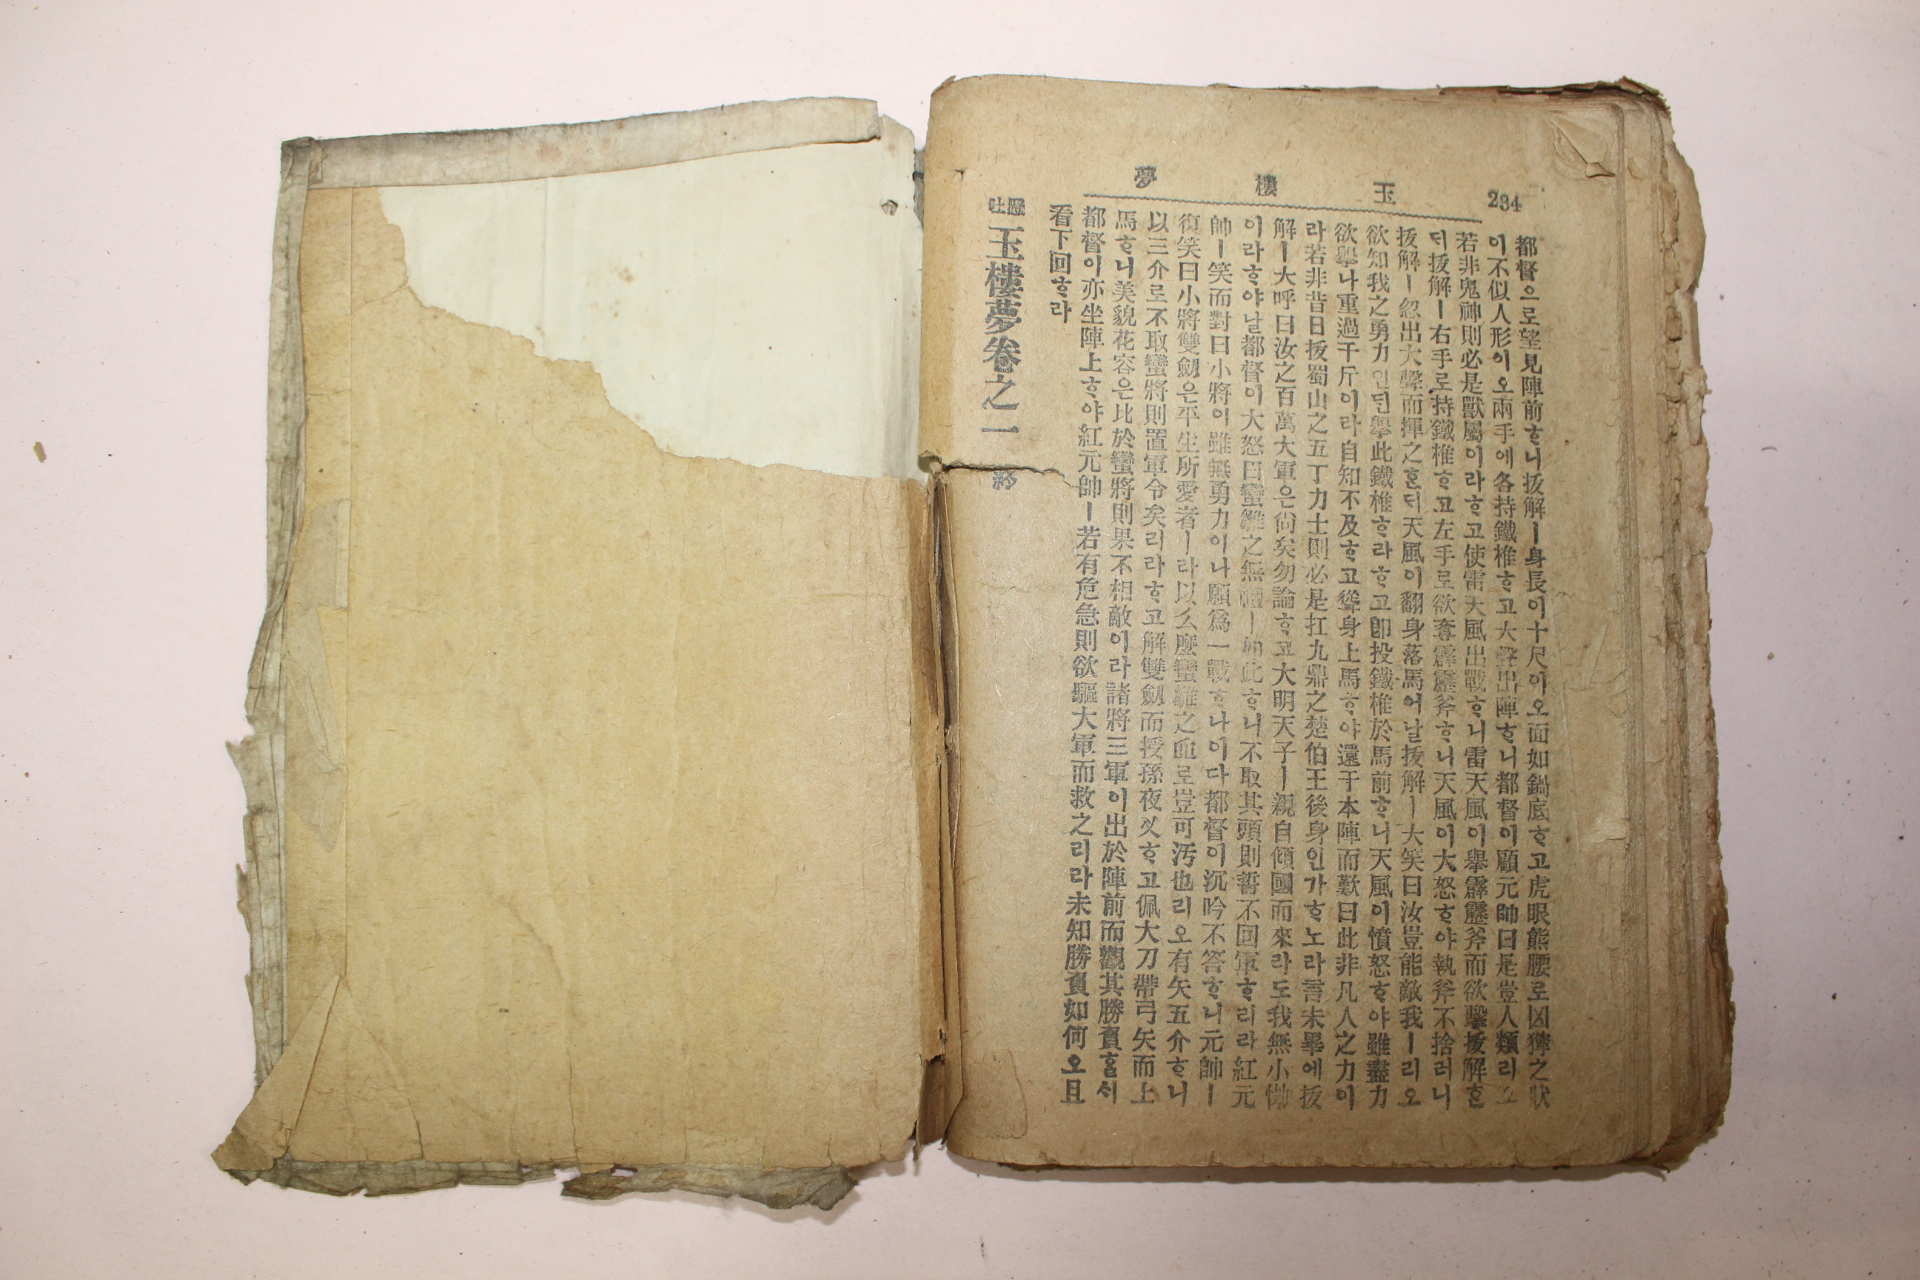 玉樓夢
234
都督으로望見陣前ᄒᆞ니拔解ㅣ身長이十尺이오面如鍋底ᄒᆞ고虎眼熊腰로凶獰之狀
이不似人形이오兩手에各持鐵椎ᄒᆞ고大聲出陣ᄒᆞ니都督이顧元帥曰是豈人類리오
若非鬼神則必是獸屬이라ᄒᆞ고使雷天風出戰ᄒᆞ니雷天風이擧霹靂斧而欲擊拔解ᄒᆞᆫ
ᄃᆡ拔解ㅣ右手로持鐵椎ᄒᆞ고左手로欲奪霹靂斧ᄒᆞ니天風이大怒ᄒᆞ야執斧不捨러니
拔解ㅣ忽出大聲而揮之ᄒᆞᆫᄃᆡ天風이翻身落馬어날拔解ㅣ大笑曰汝豈能敵我ㅣ리오
欲知我之勇力인ᄃᆡᆫ擧此鐵椎ᄒᆞ라ᄒᆞ고卽投鐵椎於馬前ᄒᆞ니天風이憤怒ᄒᆞ야雖盡力
欲擧나重過千斤이라自知不及ᄒᆞ고聳身上馬ᄒᆞ야還于本陣而歎曰此非凡人之力이
라若非昔日拔蜀山之五丁力士則必是扛九鼎之楚伯王後身인가ᄒᆞ노라言未畢에拔
解ㅣ大呼曰汝之百萬大軍은尙矣勿論ᄒᆞ고大明天子ㅣ親自傾國而來라도我無小㤼
이라ᄒᆞ야날都督이大怒曰蠻雛之無禮ㅣ如此ᄒᆞ니不取其頭則誓不回軍ᄒᆞ리라紅元
帥ㅣ笑而對曰小將이雖無勇力이나願爲一戰ᄒᆞ나이다都督이沉吟不答ᄒᆞ니元帥ㅣ
復笑曰小將雙劒은平生所愛者ㅣ라以么麽蠻雛之血로豈可汚也리오有矢五介ᄒᆞ니
以三介로不取蠻將則置軍令矣리라ᄒᆞ고解雙劒而授孫夜义ᄒᆞ고佩大刀帶弓矢而上
馬ᄒᆞ니美貌花容은比於蠻將則果不相敵이라諸將三軍이出於陣前而觀其勝負ᄒᆞᆯᄉᆡ
都督이亦坐陣上ᄒᆞ야紅元帥ㅣ若有危急則欲驅大軍而救之리라未知勝負如何오且
看下回ᄒᆞ라
懸吐玉樓夢卷之一 終